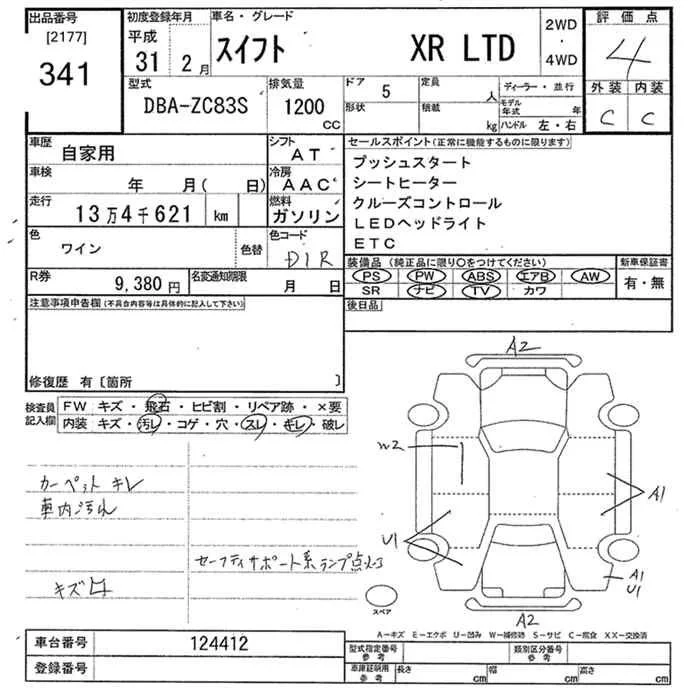 出品番号
[2177]
341
初度登録年月
平成
31 2月
車名・グレード
スイフト XR LTD
2WD
・
4WD
評価点
4
外装 内装
C C
型式
DBA-ZC83S
排気量
1200
CC
ドア 5
形状
定員
人
積載
kg
ディーラー・並行
モデル年式 年
ハンドル 左・右
車歴
自家用
シフト
AT
車検
年 月( 日)
冷房
AAC
走行
13万4千621 km
燃料
ガソリン
色
ワイン
色替
色コード
D1R
R券
9,380円
名変通知期限
月 日
セールスポイント(正常に機能するものに限ります)
プッシュスタート
シートヒーター
クルーズコントロール
LEDヘッドライト
ETC
装備品 (純正品に限り○をつけてください)
PS PW ABS エアB AW
SR ナビ TV カワ
新車保証書
有・無
後日品
注意事項申告欄(不具合内容等は具体的に記入して下さい)
修復歴 有〔箇所 〕
検査員
記入欄
FW キズ・飛石・ヒビ割・リペア跡・×要
内装 キズ・汚レ・コゲ・穴・スレ・キレ・破レ
カーペット キレ
車内汚れ
セーフティサポート系ランプ点灯
キズ
A2
W2
A1
U1
A1
U1
A2
スペア
A-キズ E-エクボ U-凹み W-補修跡 S-サビ C-腐食 XX-交換済
車台番号
124412
登録番号
型式指定番号
参考
類別区分番号
参考
車庫証明用
参考
長さ cm
幅 cm
高さ cm